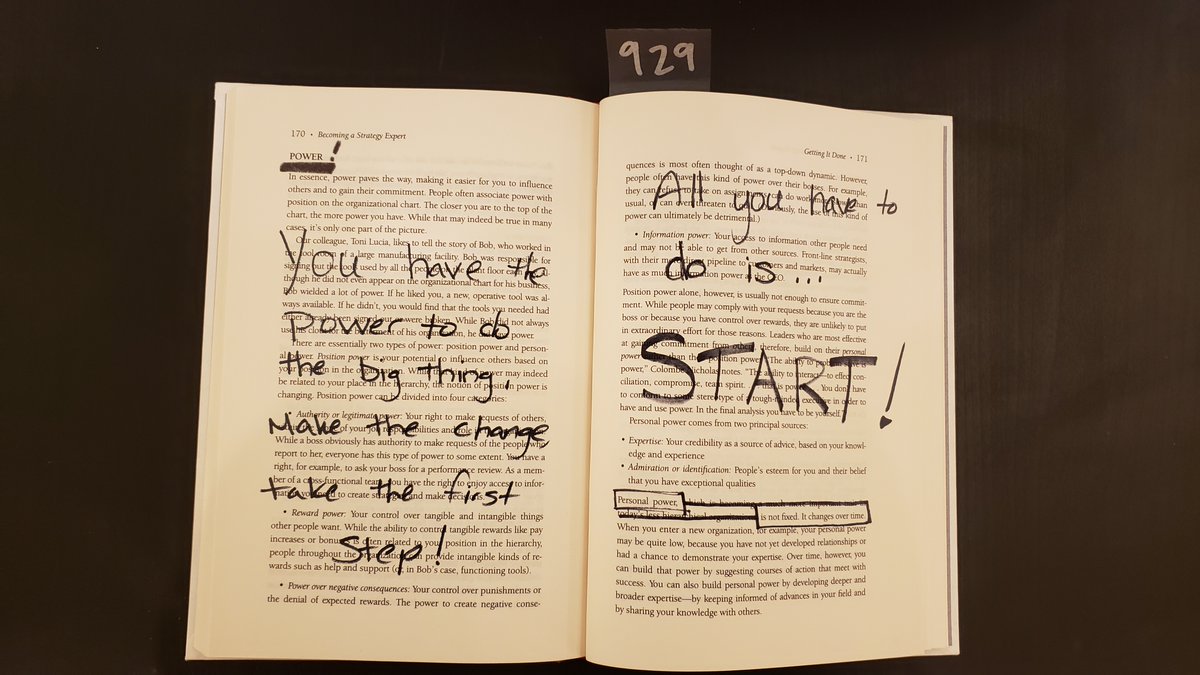 929
170 • Becoming a Strategy Expert
POWER !
In essence, power paves the way, making it easier for you to influence
others and to gain their commitment. People often associate power with
position on the organizational chart. The closer you are to the top of the
chart, the more power you have. While that may indeed be true in many
cases, it's only one part of the picture.
Our colleague, Toni Lucia, likes to tell the story of Bob, who worked in
the tool room of a large manufacturing facility. Bob was responsible for
You have the
signing out the used by all the people on the plant floor each
though he did not even appear on the organizational chart for his business,
Bob wielded a lot of power. If he liked you, a new, operative tool was al-
ways available. If he didn't, you would find that the tools you needed had
either already been signed out or were broken. While Bob did not always
power to do
use his clout for the of his organization, he had power.
There are essentially two types of power: position power and person-
al power. Position power is your potential to influence others based on
the big thing.
your position in the organization. While power may indeed
be related to your place in the hierarchy, the notion of position power is
changing. Position power can be divided into four categories:
• Authority or legitimate power: Your right to make requests of others,
Make the change
of your job responsibilities and role
While a boss obviously has authority to make requests of the people who
report to her, everyone has this type of power to some extent. You have a
right, for example, to ask your boss for a performance review. As a mem-
ber of a cross-functional team, you have the right to enjoy access to infor-
take the first
mation you need to create and make decisions.
• Reward power: Your control over tangible and intangible things
other people want. While the ability to control tangible rewards like pay
increases or bonuses is often related to your position in the hierarchy,
step!
people throughout the organization can provide intangible kinds of re-
wards such as help and support (or, in Bob's case, functioning tools).
• Power over negative consequences: Your control over punishments or
the denial of expected rewards. The power to create negative conse-
Getting It Done • 171
quences is most often thought of as a top-down dynamic. However,
people often have this kind of power over their bosses. For example,
they can refuse to take on assignments, do work more than
All you have to
usual, or can even threaten to the use of this kind of
power can ultimately be detrimental.)
• Information power: Your access to information other people need
and may not be able to get from other sources. Front-line strategists,
do is ...
with their pipeline to customers and markets, may actually
have as much information power as the CEO.
Position power alone, however, is usually not enough to ensure commit-
ment. While people may comply with your requests because you are the
boss or because you have control over rewards, they are unlikely to put
in extraordinary effort for those reasons. Leaders who are most effective
at gaining commitment from others, therefore, build on their personal
power rather than their position power. "The ability to is
START!
power," Colombo Nicholas notes. "The ability to interact—to effect con-
ciliation, compromise, team spirit. power. You don't have
to conform to some stereotype of a tough-minded executive in order to
have and use power. In the final analysis you have to be yourself."
Personal power comes from two principal sources:
• Expertise: Your credibility as a source of advice, based on your knowl-
edge and experience
• Admiration or identification: People's esteem for you and their belief
that you have exceptional qualities
Personal power, which is becoming a much more important
today's less hierarchical is not fixed. It changes over time.
When you enter a new organization, for example, your personal power
may be quite low, because you have not yet developed relationships or
had a chance to demonstrate your expertise. Over time, however, you
can build that power by suggesting courses of action that meet with
success. You can also build personal power by developing deeper and
broader expertise—by keeping informed of advances in your field and
by sharing your knowledge with others.